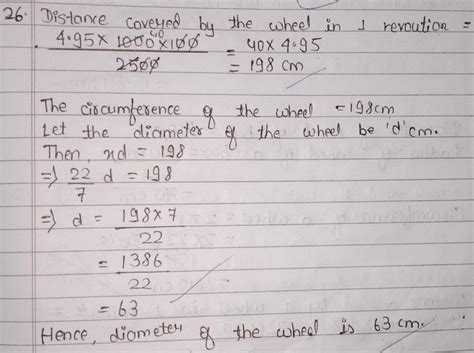 26. Distance covered by the wheel in 1 revoution =
4.95 × 1000 × 100 / 2500 = 40 × 4.95
40
= 198 cm
The circumference of the wheel = 198cm
Let the diameter of the wheel be 'd' cm.
Then, πd = 198
⇒ 22/7 d = 198
⇒ d = 198 × 7 / 22
= 1386 / 22
= 63
Hence, diameter of the wheel is 63 cm.